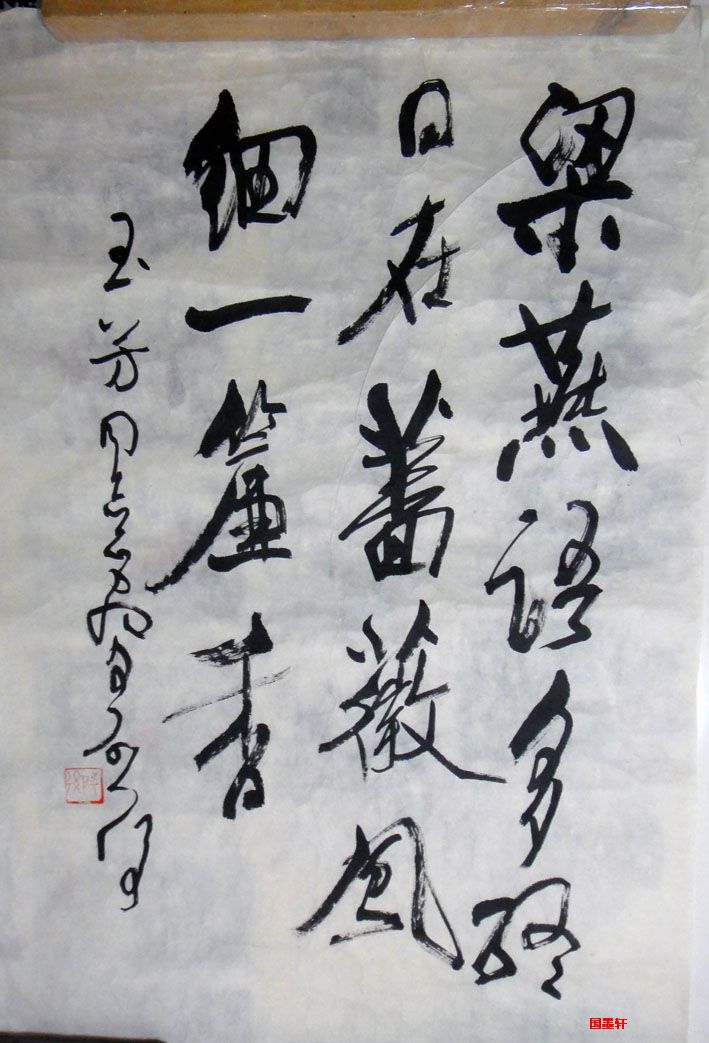 梁燕语多终
日在蔷薇风
细一簾香
玉芳同志
国墨轩